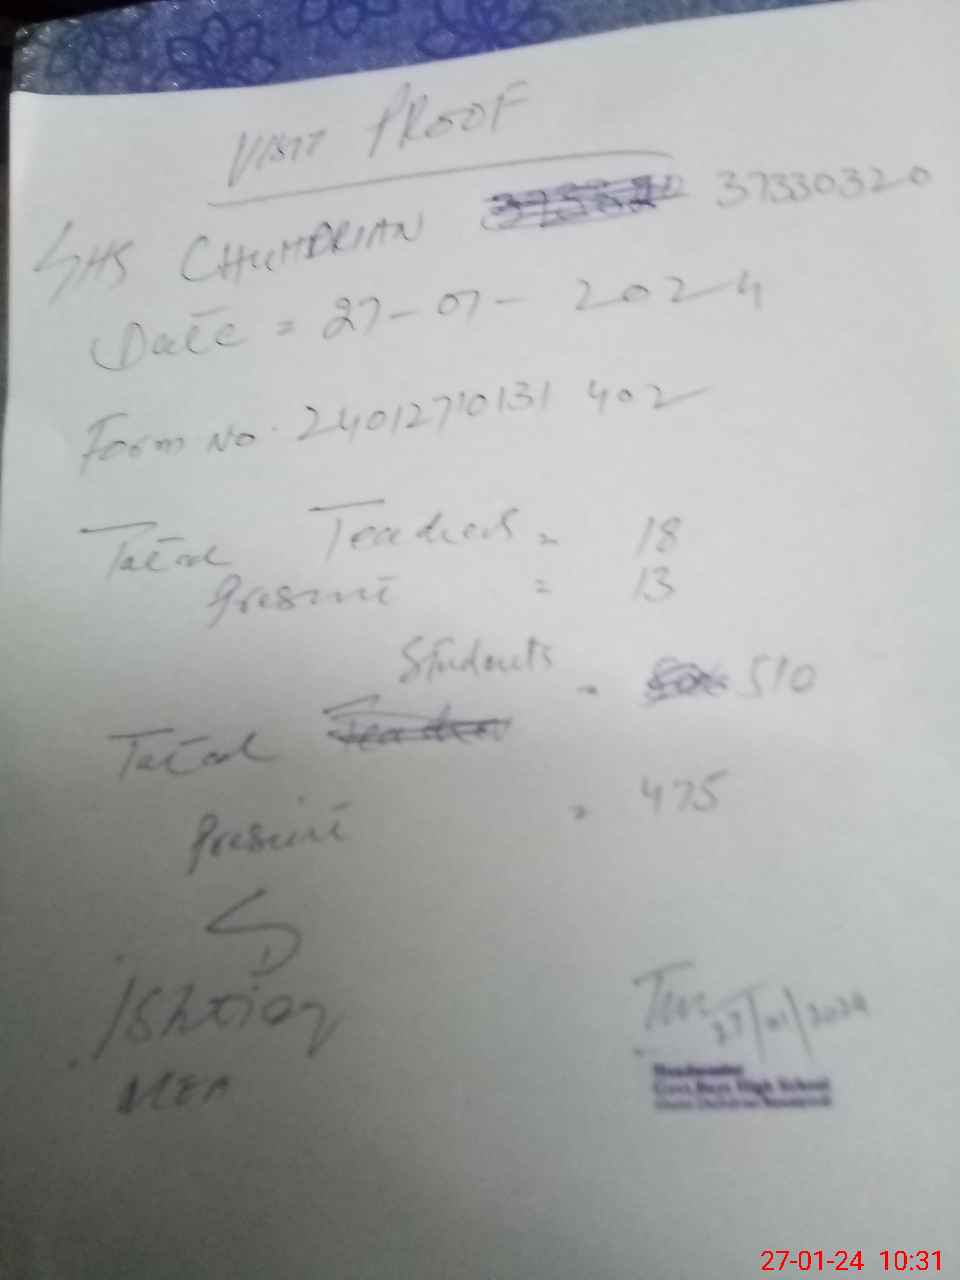 VISIT PROOF
GHS CHUHDRIAN 37330320
Date = 27-01-2024
Form No. 24012710131402
Total Teachers = 18
Present = 13
Students
Total = 510
Present = 475
Ishtiaq
MEA
27/01/2024
Headmaster
Govt Boys High School
27-01-24 10:31